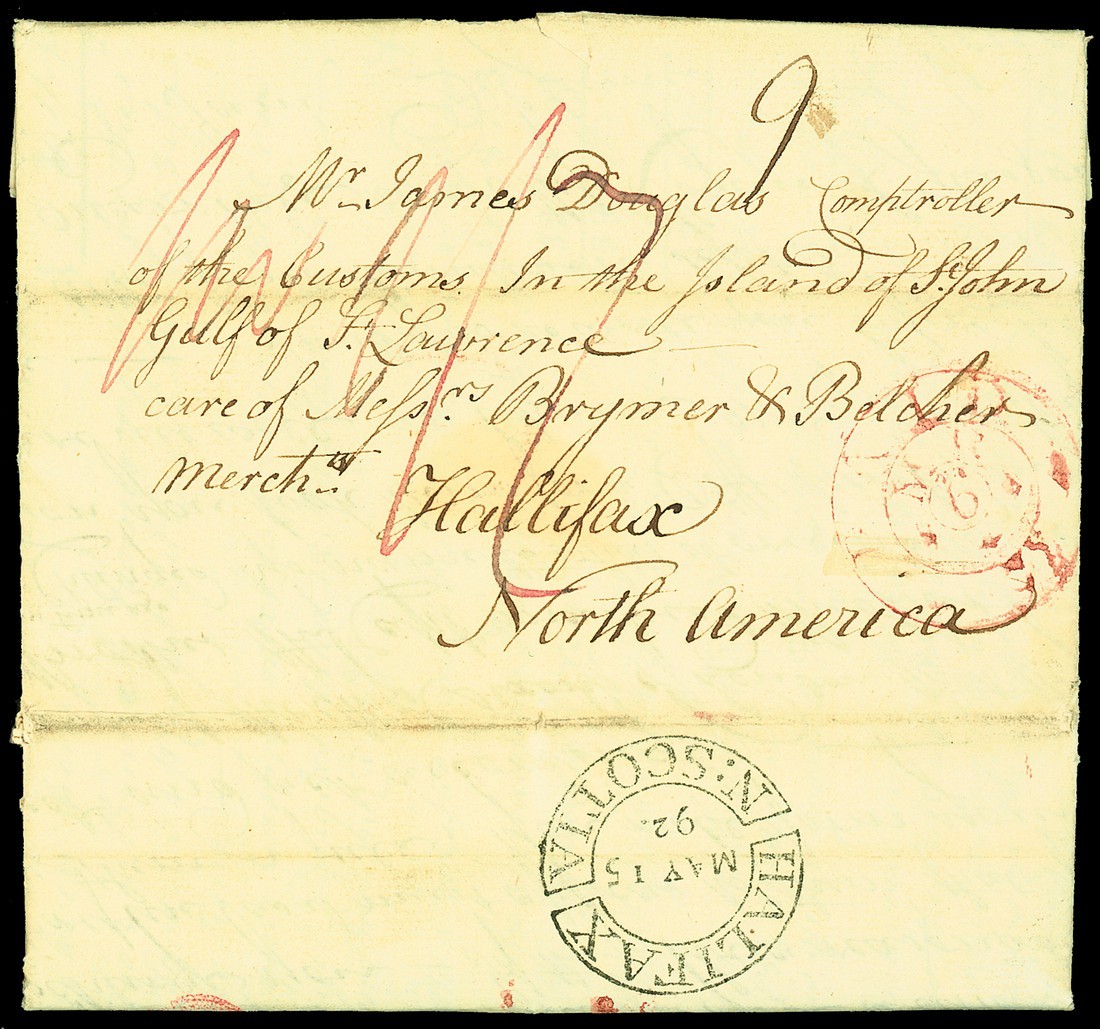 9
Mr. James Douglas Comptroller
of the Customs. In the Island of St. John
Gulf of St. Lawrence
care of Messrs Brymer & Belcher
Merchts
Hallifax
North America
HALIFAX
N: SCOTIA
MAY 15
92.